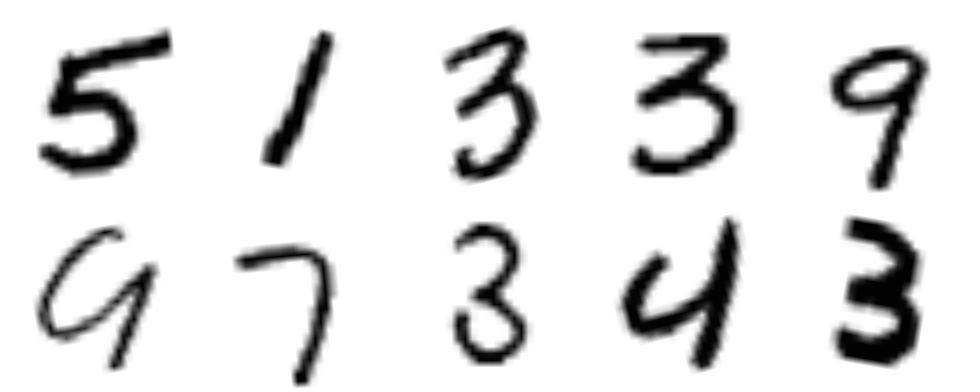 5 1 3 3 9
9 7 3 4 3